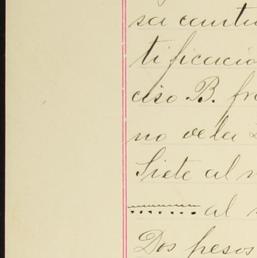 sa cantid
tificacio
ciso B. fr
no vela
Siete al
al
Dos pesos